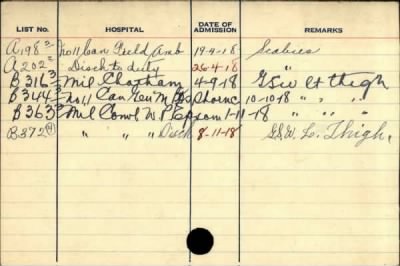 LIST No. HOSPITAL DATE OF ADMISSION REMARKS
A198³ No 11 Can Field Amb 19-4-18 Scabies
A202² Disch to duty 26-4-18 "
B316³ Mil Chatham 4-9-18 GSW Lt thigh
B344³ No 11 Can Gen M Hos Shornc 10-10-18 " " "
B363³ Mil Conv W P Epsom 1-11-18 " " "
B372⁽⁴⁾ " " " Disch 8-11-18 G.S.W. L. Thigh.